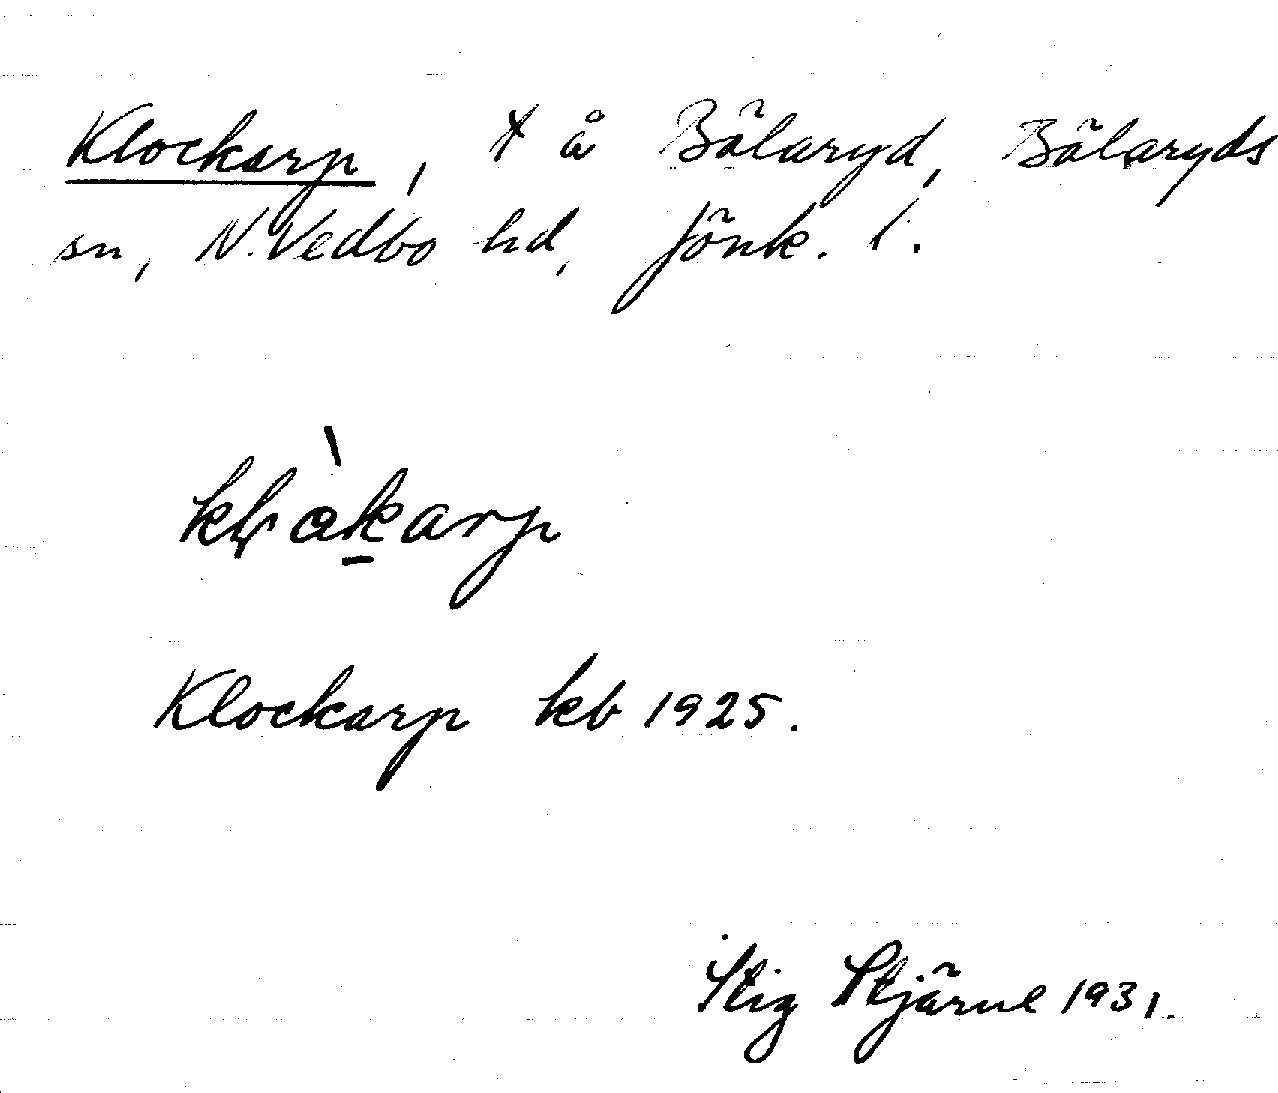 Klockarp, x å Bälaryd, Bälaryds
sn, N. Vedbo hd, Jönk. l.
klåkarp
Klockarp kb 1925.
Stig Stjärne 1931.